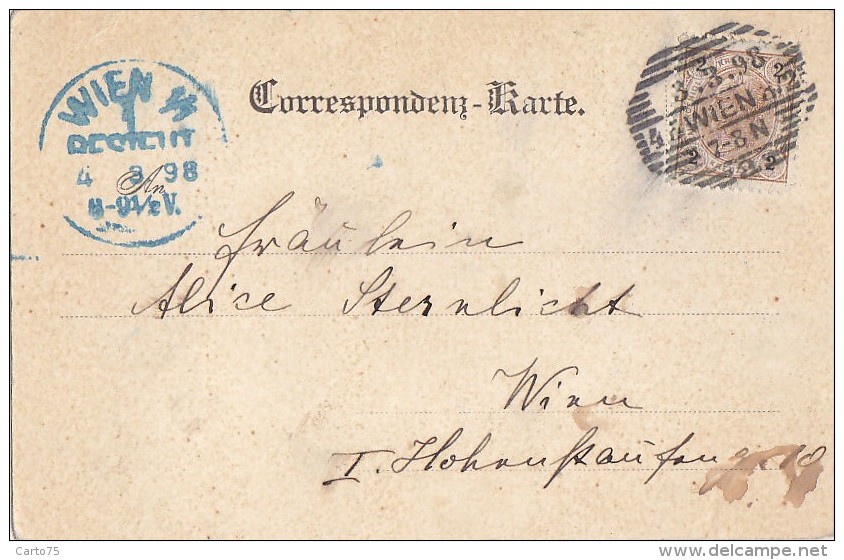 WIEN 1/1
BESTELLT
4 3 98
8-9½V.
Correspondenz-Karte.
2 2
3.3.98
WIEN
7-8 N
2 2
An
Fräulein
Alice Sternlicht
Wien
I. Hohenstaufeng. 10
Carto75
www.delcampe.net